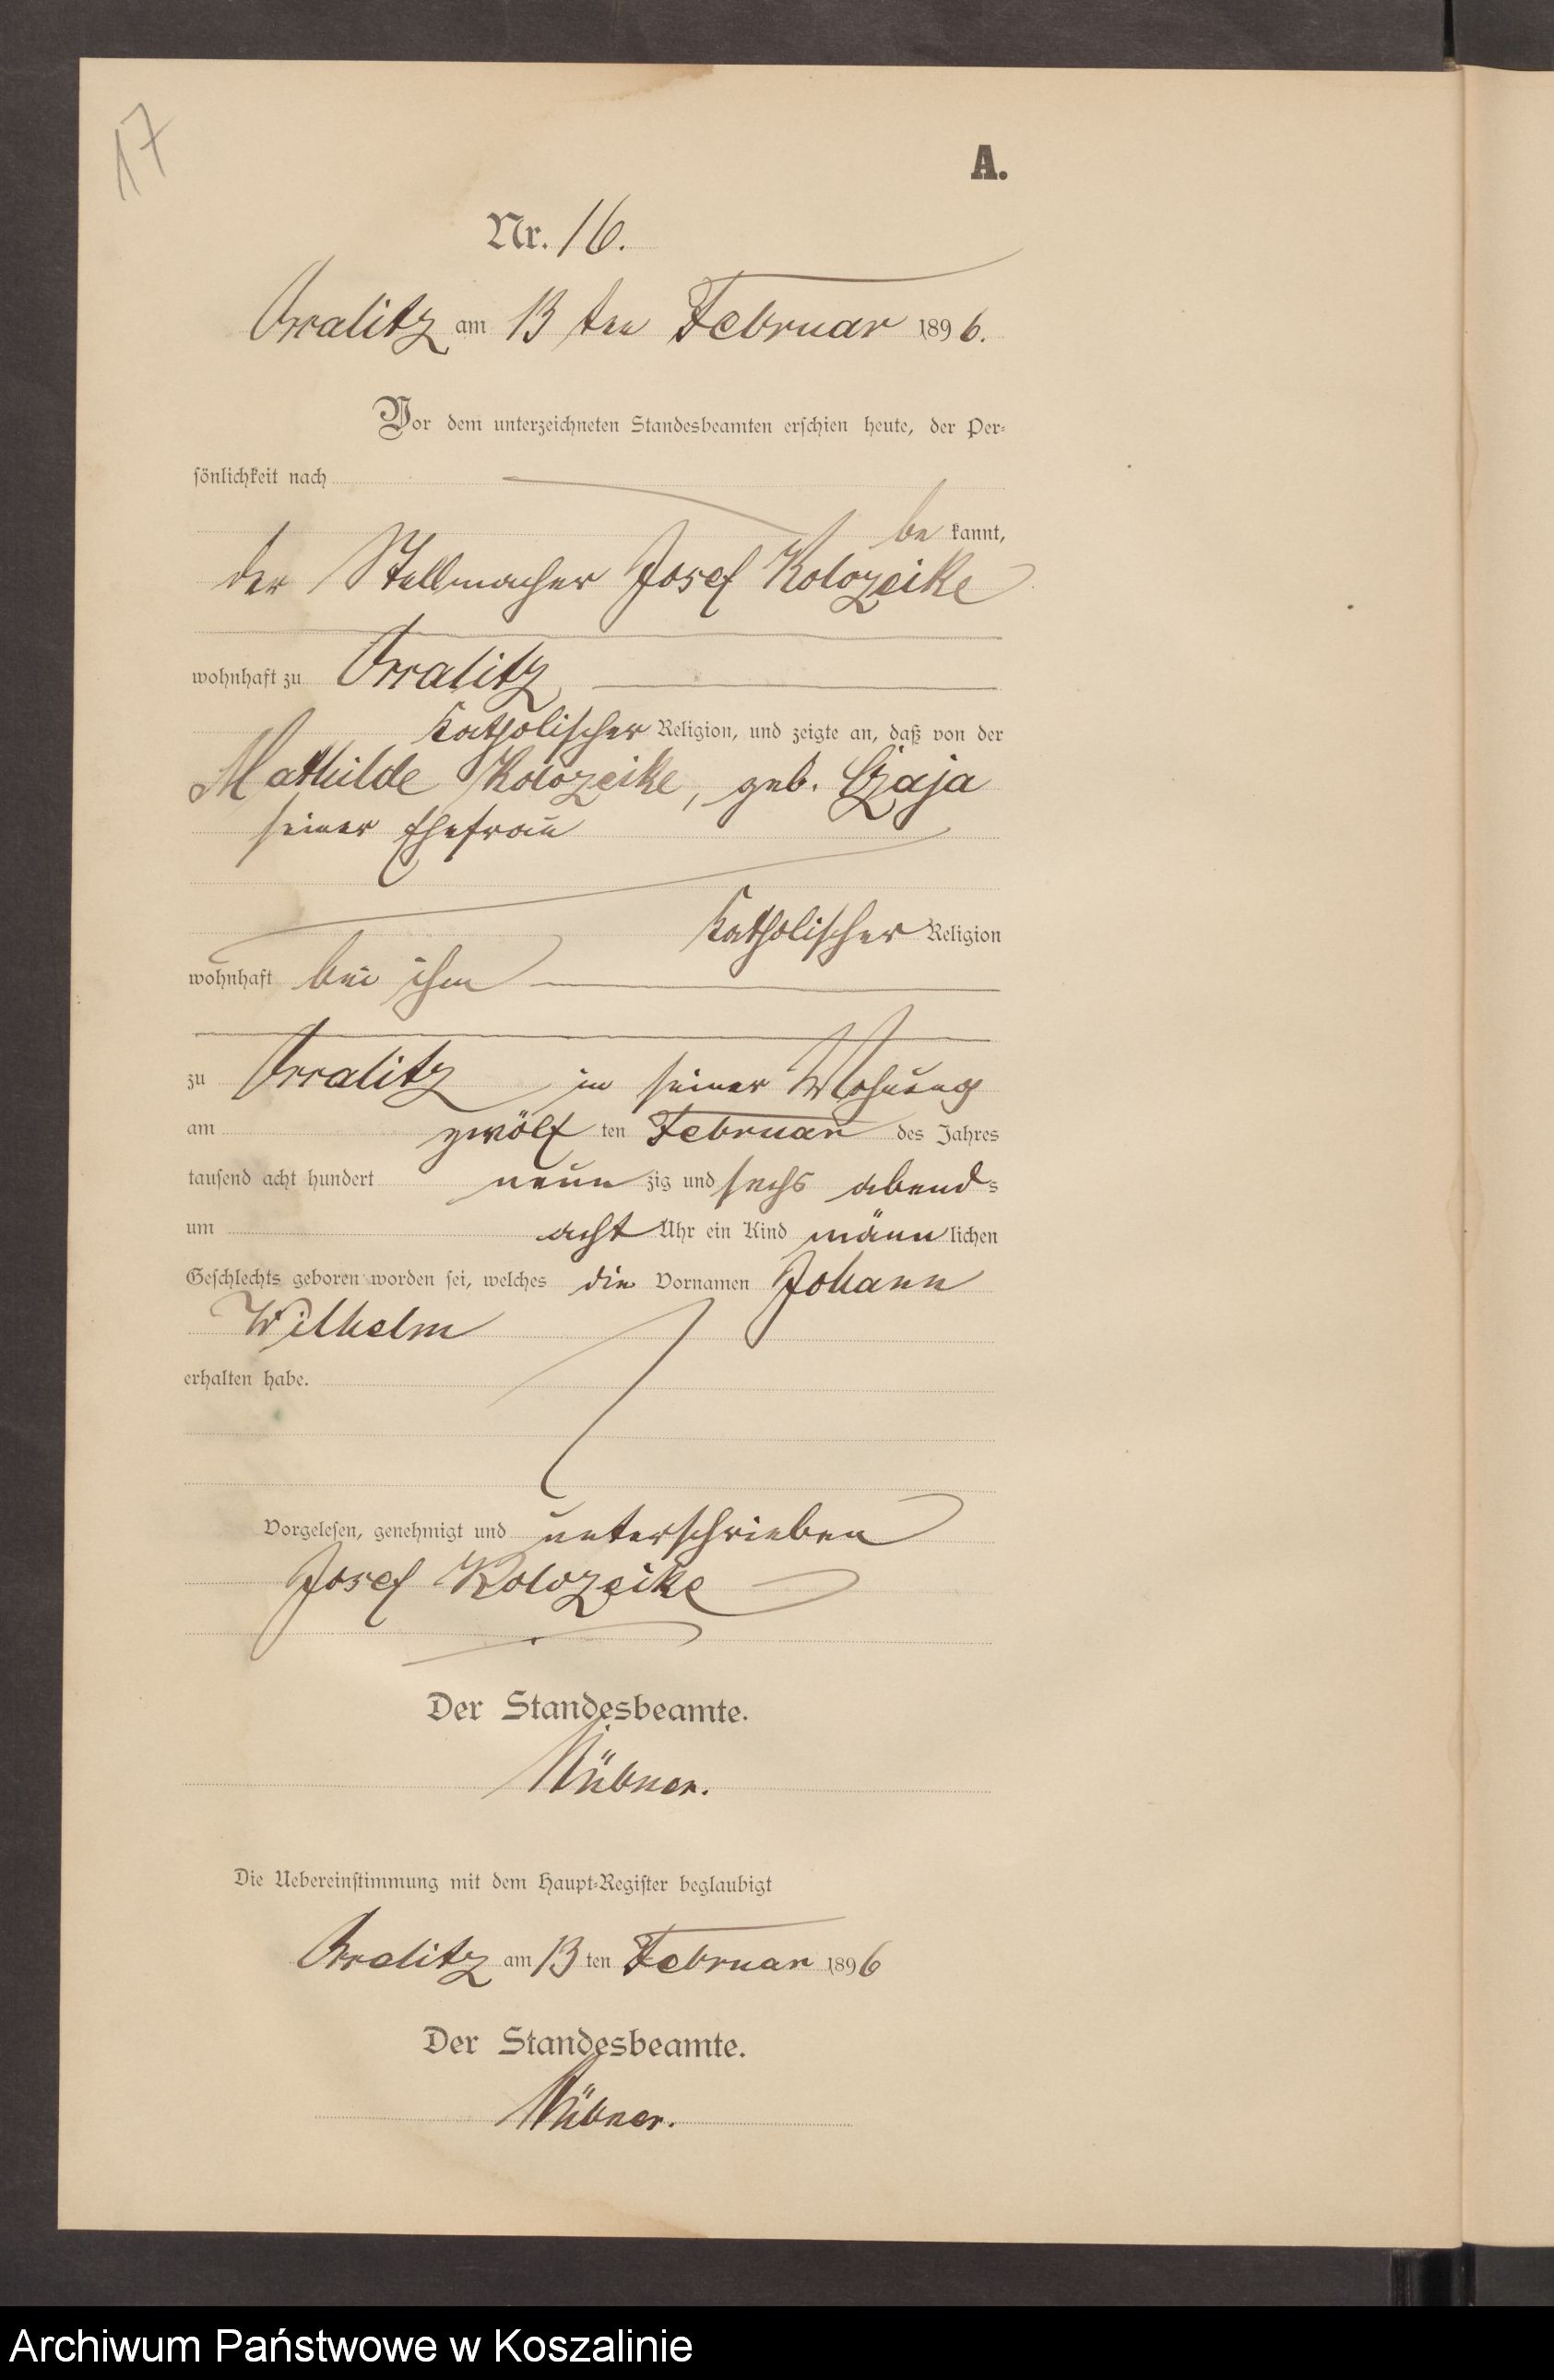 17
A.
Nr. 16.
Orralitz am 13 ten Februar 1896.
Vor dem unterzeichneten Standesbeamten erschien heute, der Per-
sönlichkeit nach
be kannt,
der Stellmacher Josef Kolozeike
wohnhaft zu Orralitz
katholischer Religion, und zeigte an, daß von der
Mathilde Kolozeike, geb. Czaja
seiner Ehefrau
katholischer Religion
wohnhaft bei ihm
zu Orralitz in seiner Wohnung
am zwölf ten Februar des Jahres
tausend acht hundert neun zig und sechs abends
um acht Uhr ein Kind männlichen
Geschlechts geboren worden sei, welches die Vornamen Johann
Wilhelm
erhalten habe.
Vorgelesen, genehmigt und unterschrieben
Josef Kolozeike
Der Standesbeamte.
Nübner.
Die Uebereinstimmung mit dem Haupt-Register beglaubigt
Orralitz am 13 ten Februar 1896
Der Standesbeamte.
Nübner.
Archiwum Państwowe w Koszalinie